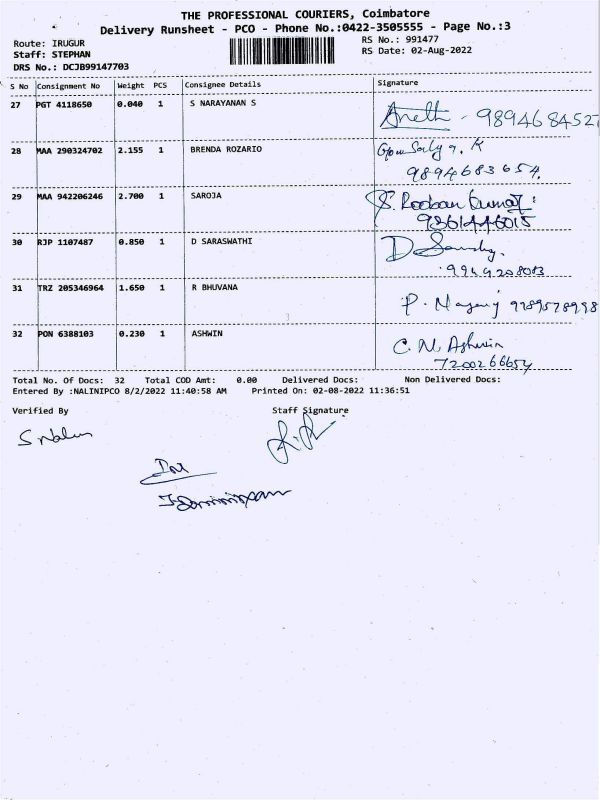 THE PROFESSIONAL COURIERS, Coimbatore
Delivery Runsheet - PCO - Phone No.:0422-3505555 - Page No.:3
Route: IRUGUR
RS No.: 991477
Staff: STEPHAN
RS Date: 02-Aug-2022
DRS No.: DCJB99147703
S No Consignment No Weight PCS Consignee Details Signature
27 PGT 4118650 0.040 1 S NARAYANAN S
- 9894684527
28 MAA 290324702 2.155 1 BRENDA ROZARIO
9894683654.
29 MAA 942206246 2.700 1 SAROJA
30 RJP 1107487 0.850 1 D SARASWATHI
31 TRZ 205346964 1.650 1 R BHUVANA
P.
32 PON 6388103 0.230 1 ASHWIN
C. N. Ashwin
7200266654
Total No. Of Docs: 32 Total COD Amt: 0.00 Delivered Docs: Non Delivered Docs:
Entered By :NALINIPCO 8/2/2022 11:40:58 AM Printed On: 02-08-2022 11:36:51
Verified By Staff Signature